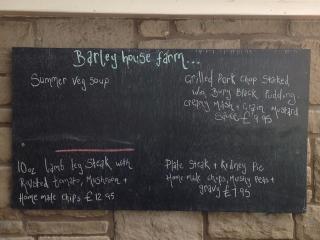 Barley house farm...
Summer veg soup
Grilled Pork Chop Stacked
w/ Bury Black Pudding
creamy Mash + Grain Mustard
Sauce £9.95
10oz Lamb leg Steak with
Roasted tomato, Mushroom +
Home made chips £12.95
Plate Steak + Kidney Pie
Home made chips, Mushy Peas +
gravy £7.95